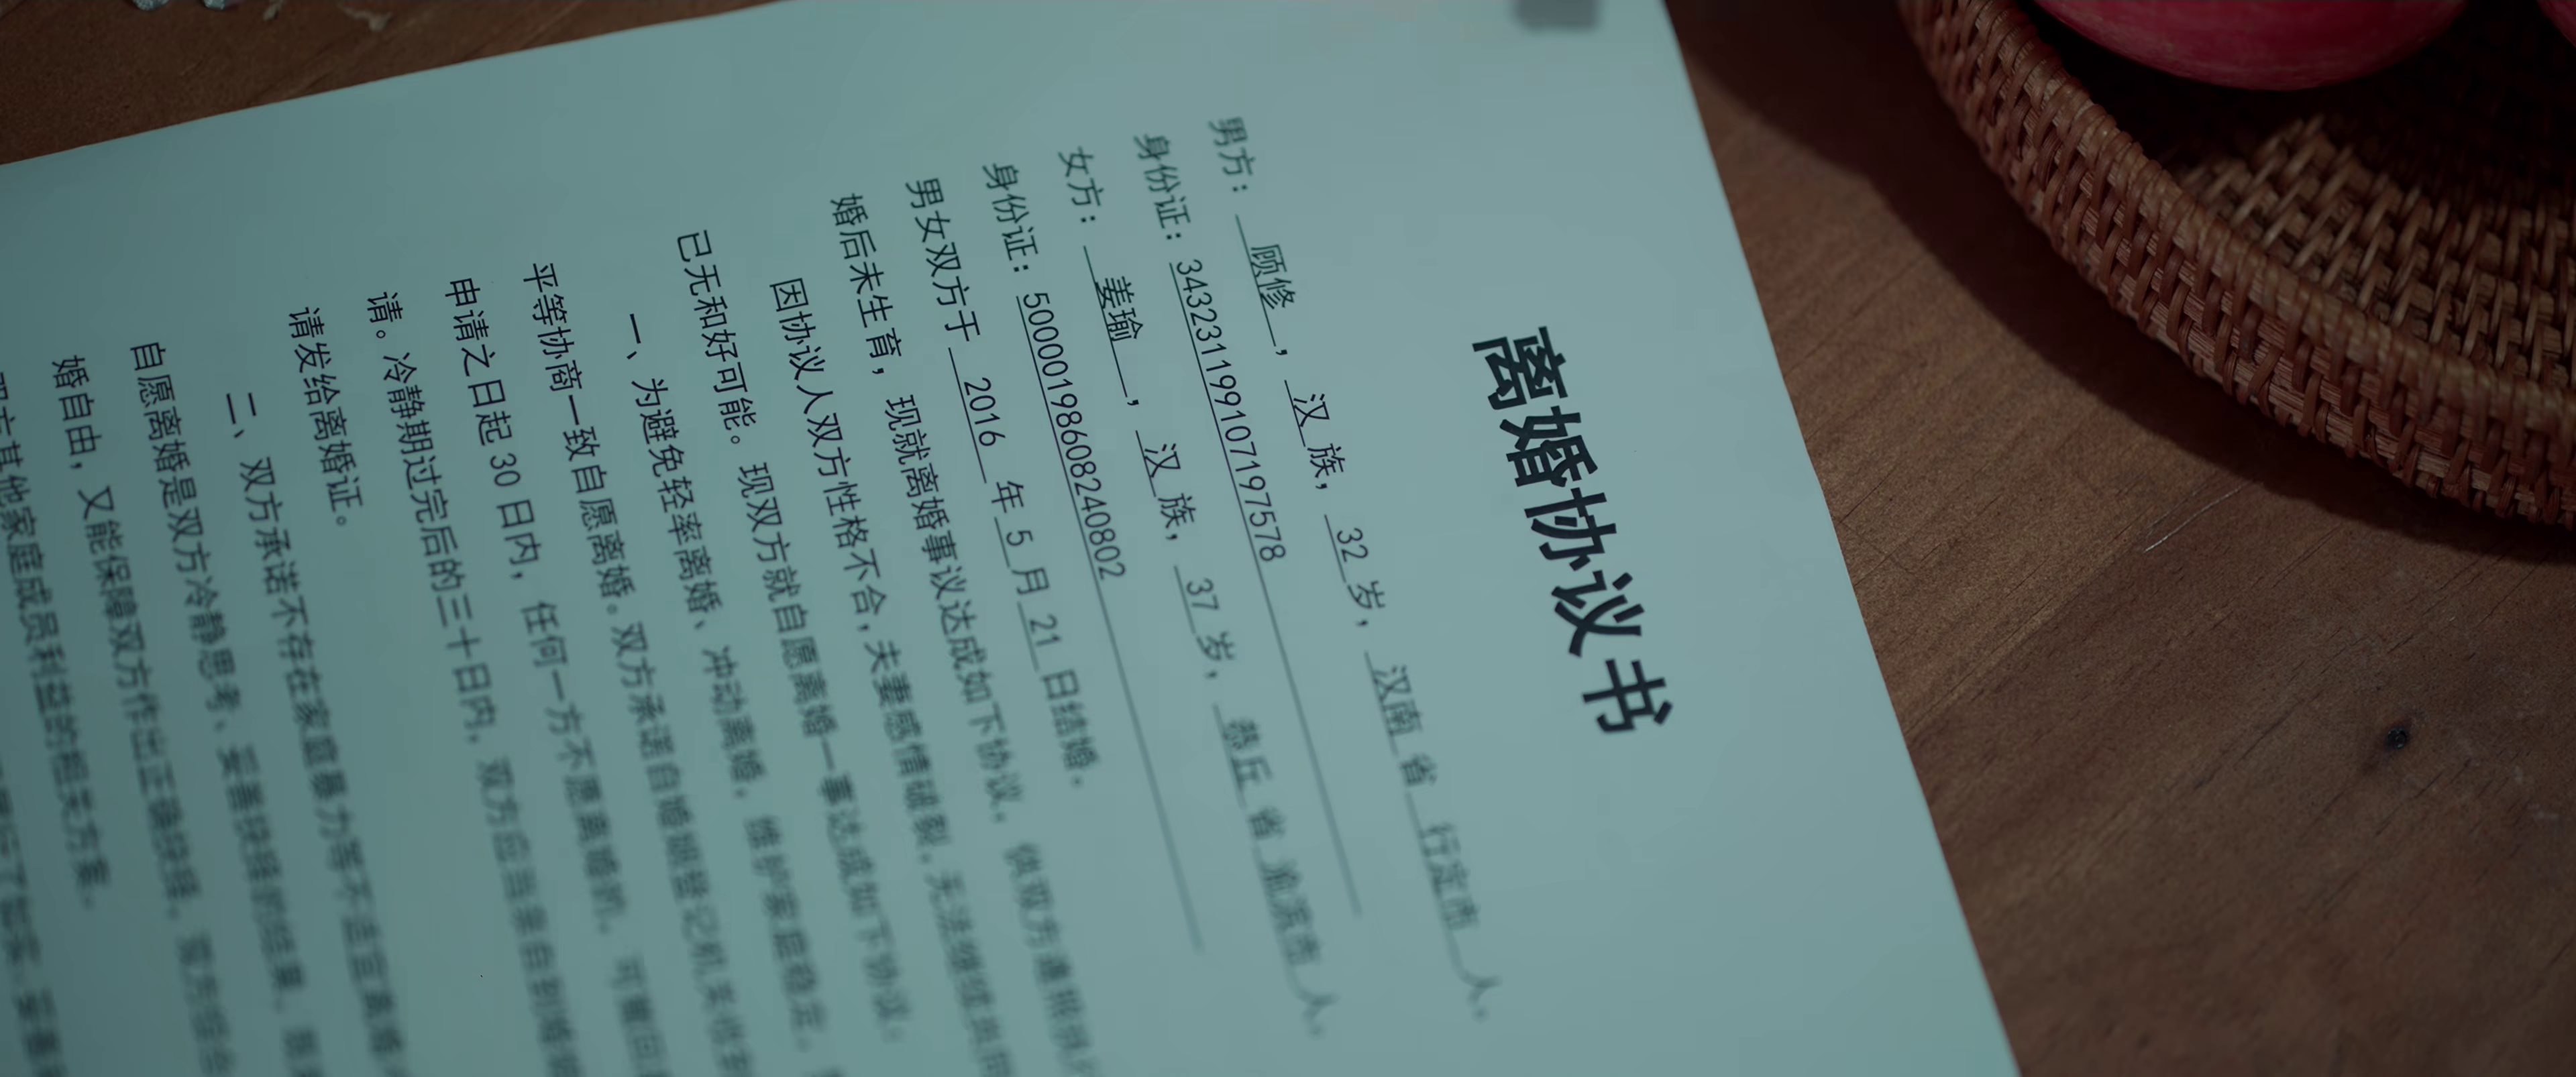 离婚协议书
男方：顾修，汉族，32岁，汉南省行定市人。
身份证：343231199107197578
女方：姜瑜，汉族，37岁，恭丘省渝滨市人。
身份证：50000198608240802
男女双方于2016年5月21日结婚。
婚后未生育，现就离婚事议达成如下协议，供双方遵照执行
因协议人双方性格不合，夫妻感情破裂，无法继续共同
已无和好可能。现双方就自愿离婚一事达成如下协议：
一、为避免轻率离婚、冲动离婚，维护家庭稳定，
平等协商一致自愿离婚。双方承诺自婚姻登记机关收到
申请之日起30日内，任何一方不愿离婚的，可撤回
请。冷静期过完后的三十日内，双方应当亲自到婚姻
请发给离婚证。
二、双方承诺不存在家庭暴力等不适宜离婚
自愿离婚是双方冷静思考、妥善抉择的结果，
婚自由，又能保障双方作出正确抉择。双方综合
其他家庭成员利益的相关方案。